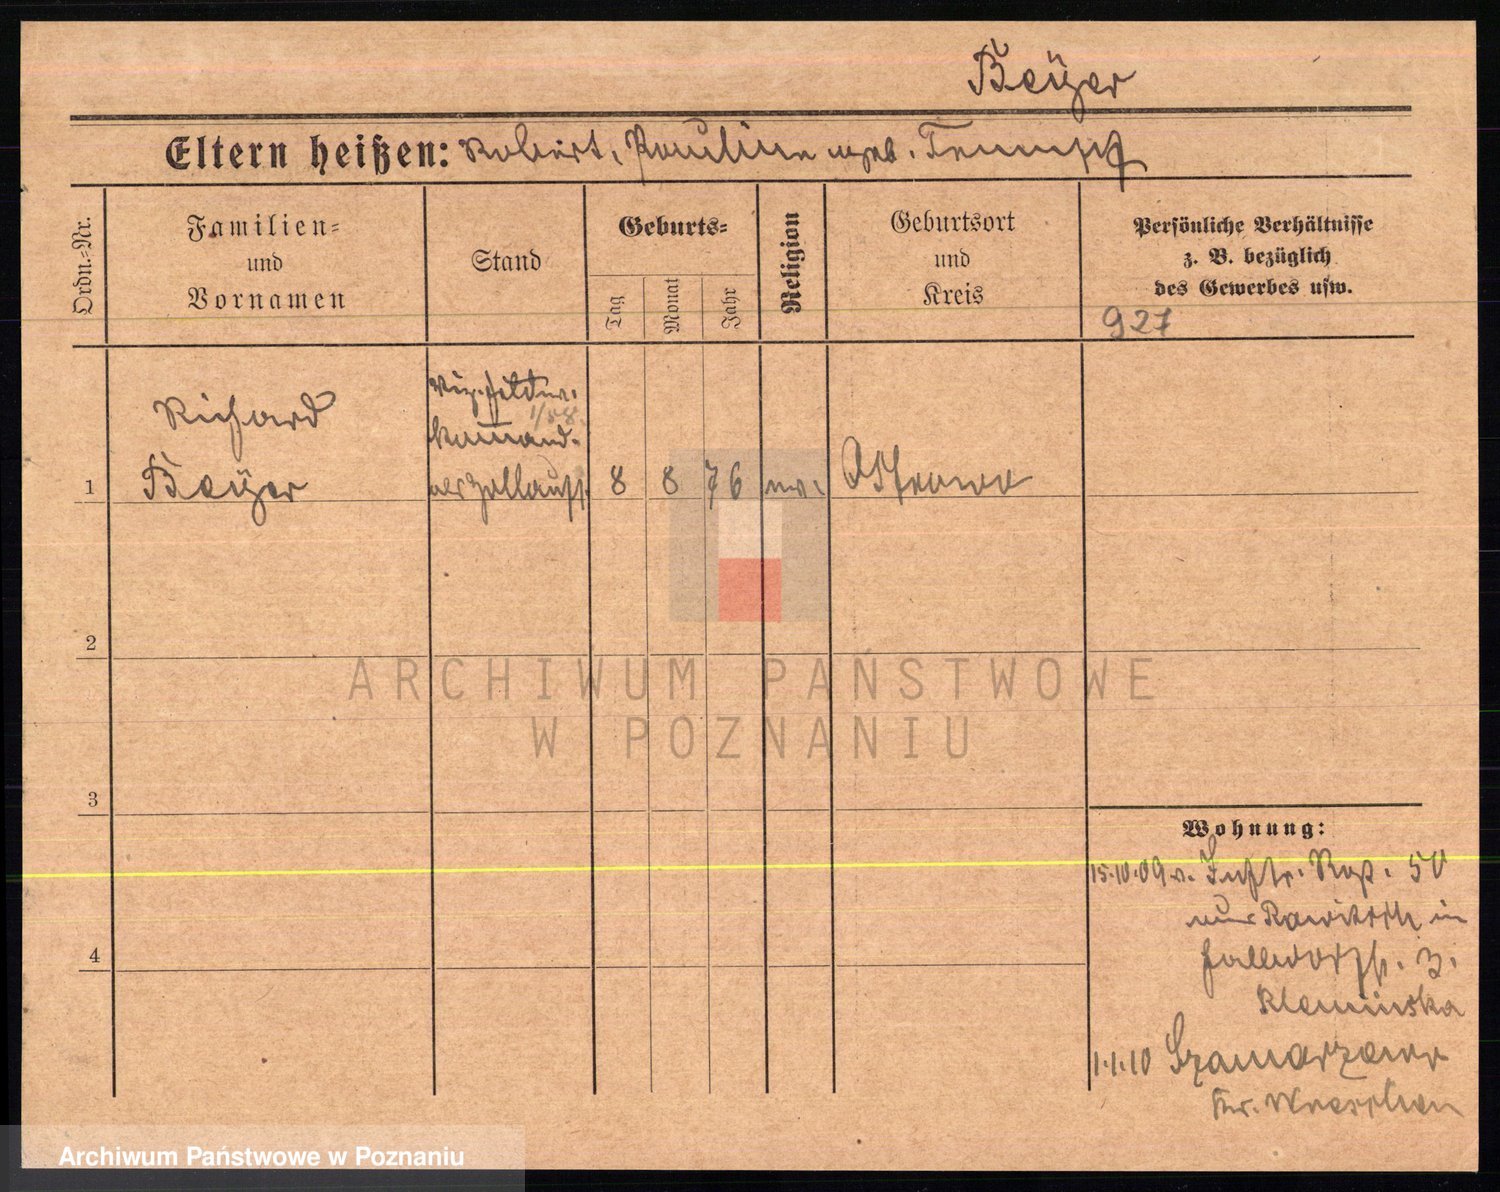 Beÿer
Eltern heißen: Robert, Pauline geb. Tempf
Ordn.-Nr.
Familien-
und
Vornamen
Stand
Geburts-
Tag
Monat
Jahr
Religion
Geburtsort
und
Kreis
Persönliche Verhältnisse
z. B. bezüglich
des Gewerbes usw.
927
Richard
Viz.feldw.
1/58.
Beÿer
1
8 8 76 ev. Ostrowo
2
ARCHIWUM PAŃSTWOWE
W POZNANIU
3
Wohnung:
15.10.09 v. Inftr. Rgt. 50
aus Rawitsch in
b.
1.1.10 Szamarzewo
Kr. Wreschen
4
Archiwum Państwowe w Poznaniu